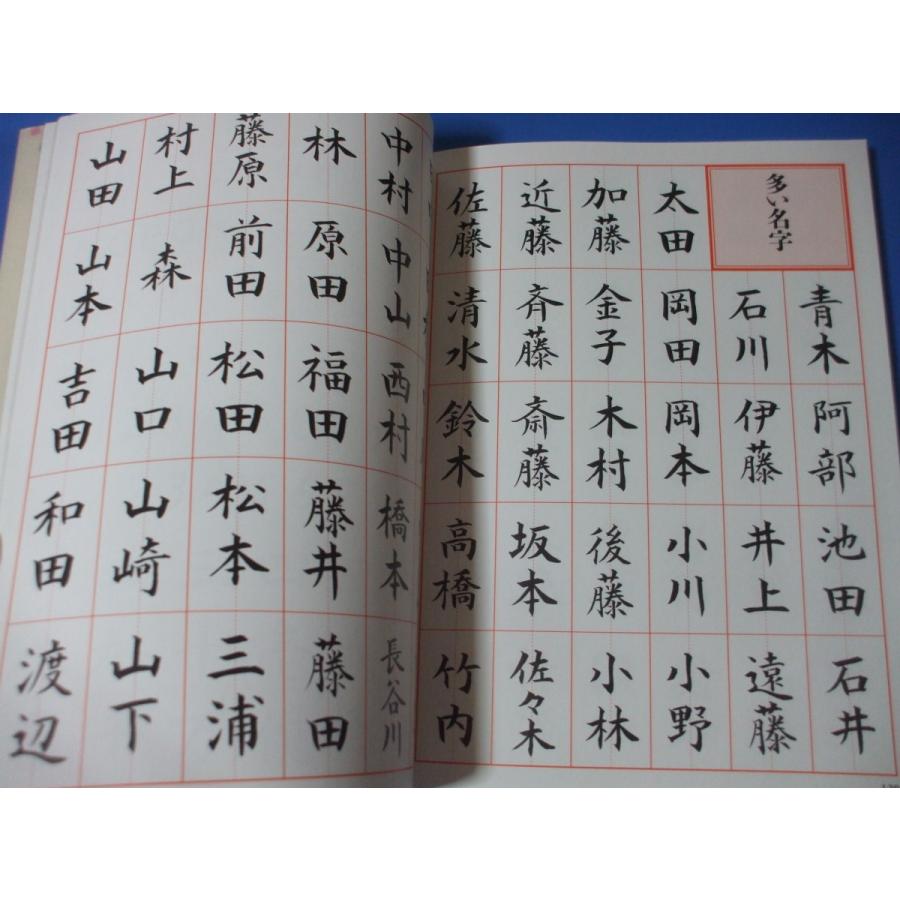 多い名字
青木
阿部
池田
石井
石川
伊藤
井上
遠藤
太田
岡田
岡本
小川
小野
加藤
金子
木村
後藤
小林
近藤
斉藤
斎藤
坂本
佐々木
佐藤
清水
鈴木
高橋
竹内
中村
中山
西村
橋本
長谷川
林
原田
福田
藤井
藤田
藤原
前田
松田
松本
三浦
村上
森
山口
山崎
山下
山田
山本
吉田
和田
渡辺